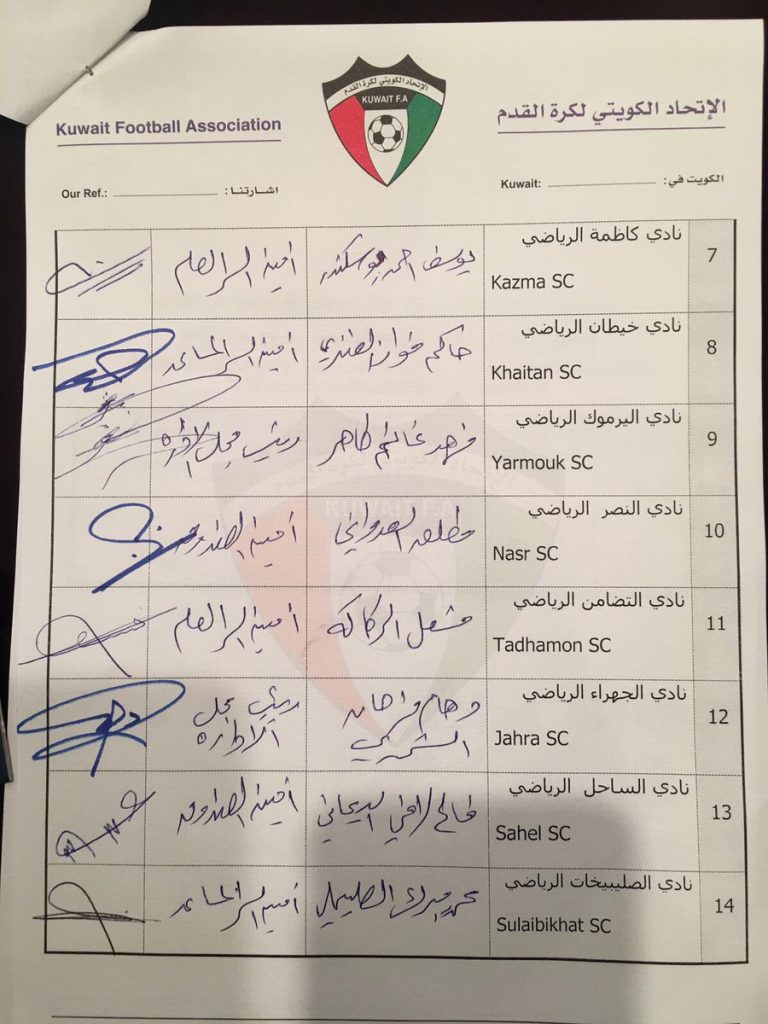 الإتحاد الكويتي لكرة القدم
KUWAIT F.A
Kuwait Football Association
الإتحاد الكويتي لكرة القدم
Our Ref.: اشارتنا :
Kuwait: الكويت في:
7
نادي كاظمة الرياضي
Kazma SC
يوسف احمد بوسكندر
أمين السر العام
8
نادي خيطان الرياضي
Khaitan SC
حاكم فوزان
أمين السر المساعد
9
نادي اليرموك الرياضي
Yarmouk SC
فهد غانم طاهر
رئيس مجلس الادارة
10
نادي النصر الرياضي
Nasr SC
العدواني
أمين الصندوق
11
نادي التضامن الرياضي
Tadhamon SC
مشعل
أمين السر العام
12
نادي الجهراء الرياضي
Jahra SC
الشمري
رئيس مجلس
الادارة
13
نادي الساحل الرياضي
Sahel SC
أمين الصندوق
14
نادي الصليبيخات الرياضي
Sulaibikhat SC
محمد مبارك
أمين السر المساعد
KUWAIT F.A